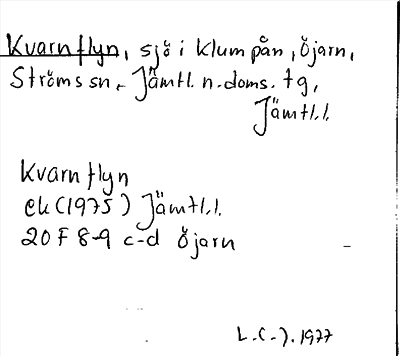 Kvarnflyn, sjö i Klumpån, Öjarn,
Ströms sn, Jämtl. n. doms. tg,
Jämtl. l.
Kvarnflyn
ek (1975) Jämtl. l.
20 F 8-9 c-d Öjarn
L.C-J. 1977